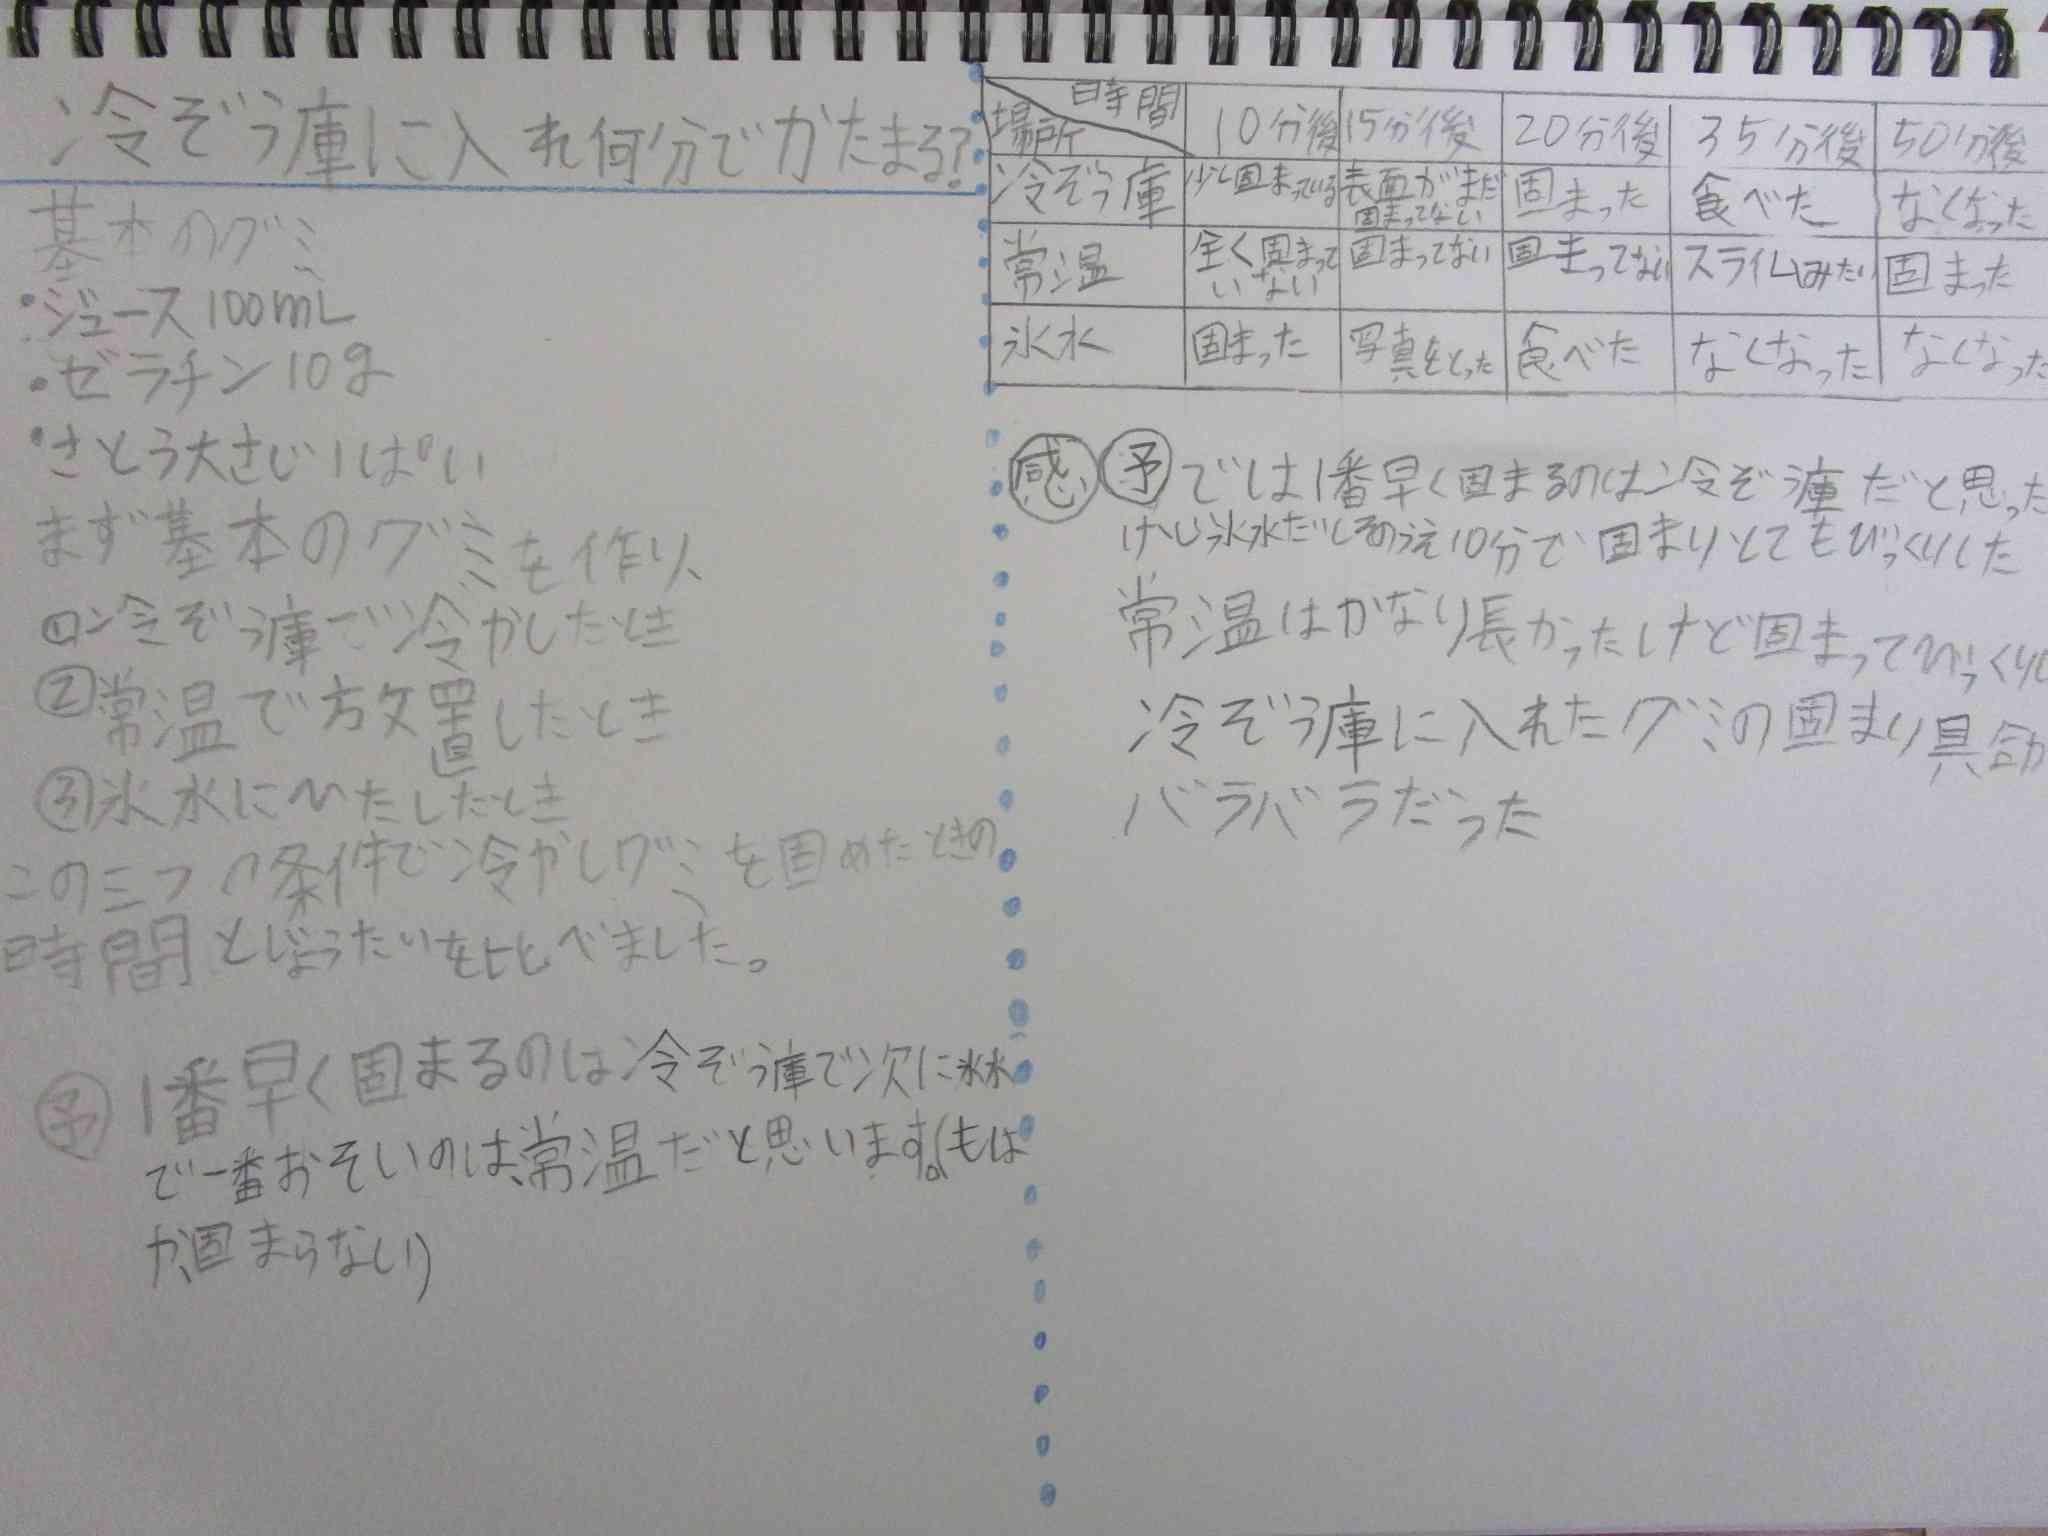 冷ぞう庫に入れ何分でかたまる?
基本のグミ
・ジュース100mL
・ゼラチン10g
・さとう大さじ1ぱい
まず基本のグミを作り、
①冷ぞう庫で冷やしたとき
②常温で放置したとき
③氷水にひたしたとき
この三つの条件で冷やしグミを固めたときの
時間とじょうたいを比べました。
予 1番早く固まるのは冷ぞう庫で次に氷水
で一番おそいのは、常温だと思います。(もしくは
か、固まらない)
場所 時間 10分後 15分後 20分後 35分後 50分後
冷ぞう庫 少し固まっている 表面がまだ固まってない 固まった 食べた なくなった
常温 全く固まっていない 固まってない 固まってない スライムみたい 固まった
氷水 固まった 写真をとった 食べた なくなった なくなった
感 予では1番早く固まるのは冷ぞう庫だと思った
けど氷水だしそのうえ10分で固まりとてもびっくりした
常温はかなり長かったけど固まってびっくりし
冷ぞう庫に入れたグミの固まり具合
バラバラだった